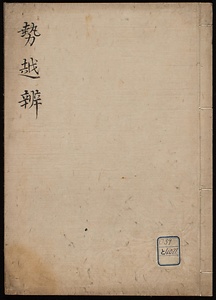 勢越辨